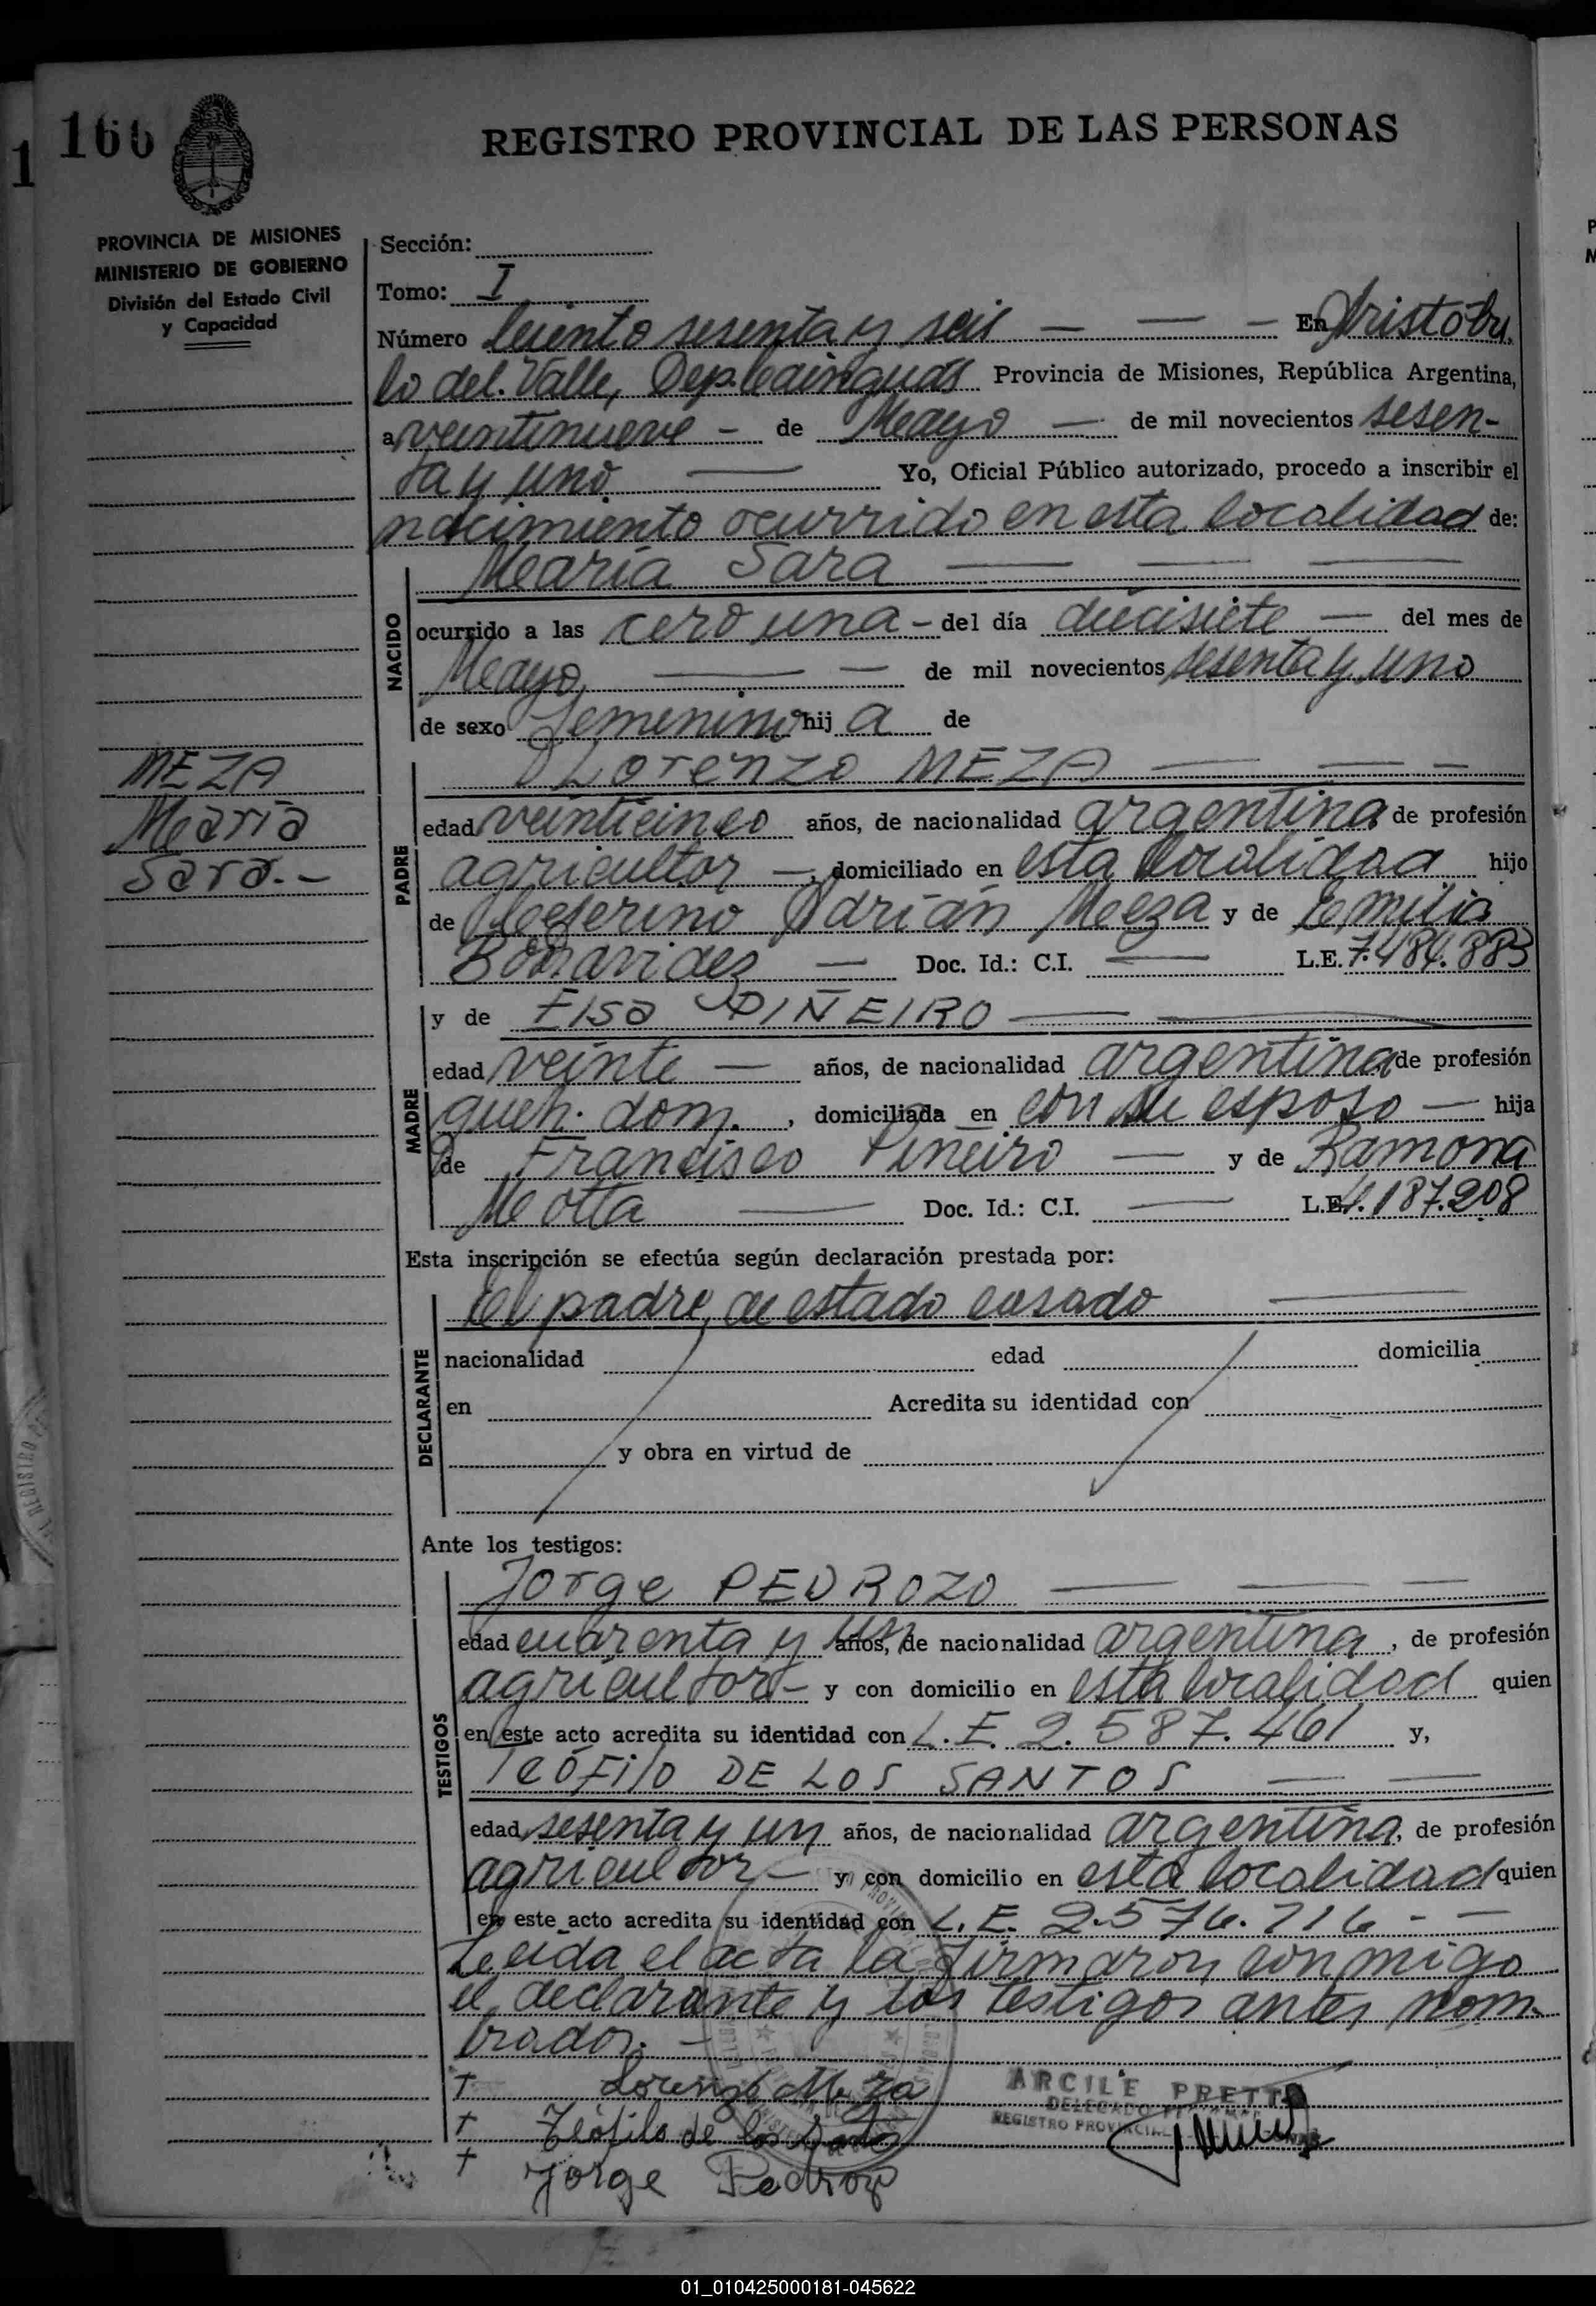 166
REGISTRO PROVINCIAL DE LAS PERSONAS
PROVINCIA DE MISIONES
MINISTERIO DE GOBIERNO
División del Estado Civil
y Capacidad
Sección:
Tomo: I
Número Ciento sesenta y seis — — — En Aristóbu
lo del Valle, Dep. Cainguás Provincia de Misiones, República Argentina,
a veintinueve — de Mayo — de mil novecientos sesen-
ta y uno — Yo, Oficial Público autorizado, procedo a inscribir el
nacimiento ocurrido en esta localidad de:
NACIDO
María Sara — — —
ocurrido a las cero una — del día diecisiete — del mes de
Mayo — — de mil novecientos sesenta y uno
de sexo femenino hij a de
MEZA
María
Sara.-
PADRE
Lorenzo MEZA — — —
edad veinticinco años, de nacionalidad argentina de profesión
agricultor —, domiciliado en esta localidad hijo
de Ceferino Adrián Meza y de Emilia
Benavidez — Doc. Id.: C.I. — L.E. 7.484.883
MADRE
y de Elsa PIÑEIRO — —
edad veinte — años, de nacionalidad argentina de profesión
queh. dom. , domiciliada en con su esposo — hija
de Francisco Piñeiro — y de Ramona
Motta — Doc. Id.: C.I. — L.E. 4.187.208
Esta inscripción se efectúa según declaración prestada por:
DECLARANTE
El padre, de estado casado —
nacionalidad edad domicilia
en Acredita su identidad con
y obra en virtud de
Ante los testigos:
TESTIGOS
Jorge PEDROZO — — —
edad cuarenta y un años, de nacionalidad argentina, de profesión
agricultor — y con domicilio en esta localidad quien
en este acto acredita su identidad con L.E. 2.587.461 y,
TEÓFilO DE LOS SANTOS — —
edad sesenta y un años, de nacionalidad argentina, de profesión
agricultor — y con domicilio en esta localidad quien
en este acto acredita su identidad con L.E. 2.576.716 - —
Leida el acta la firmaron conmigo
el declarante y los testigos antes nom
brados. —
Lorenzo Meza
Teófilo de los Santos
Jorge Pedrozo
ARCILE PRETTO
DELEGADO
REGISTRO PROVINCIAL
01_010425000181-045622